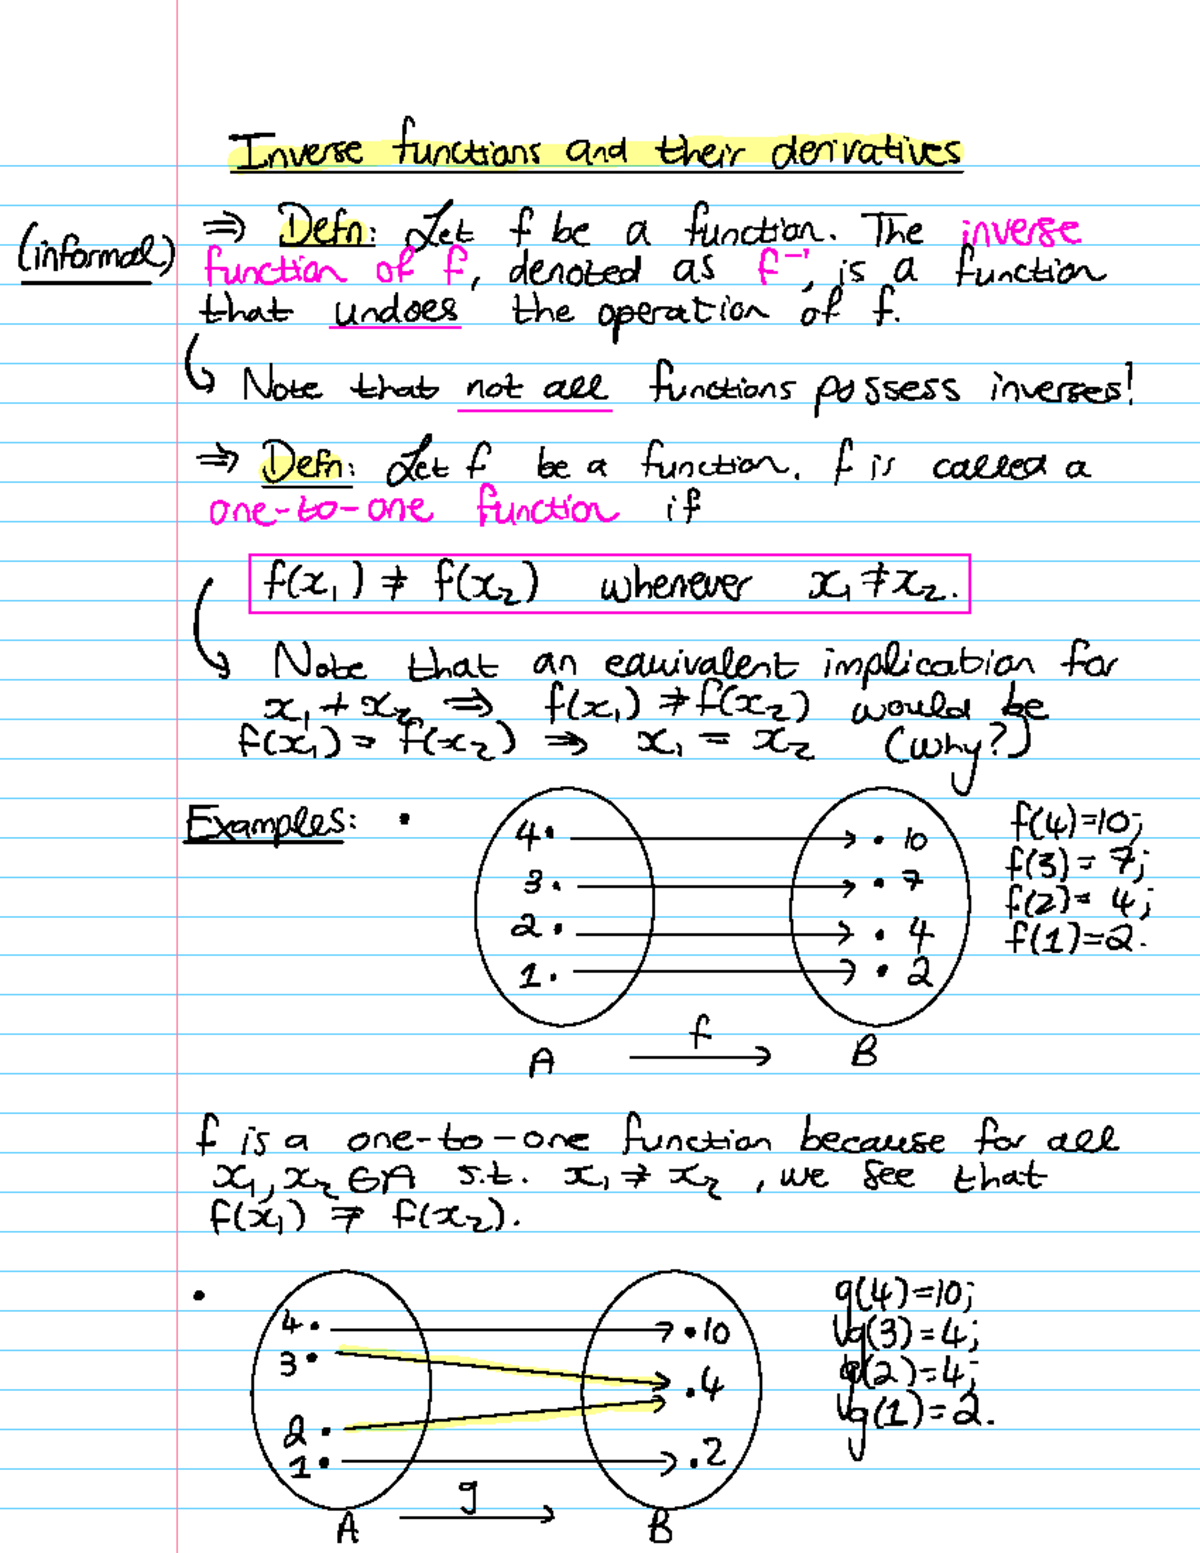 Inverse functions and their derivatives
(informal) ⇒ Defn: Let f be a function. The inverse
function of f, denoted as f⁻¹, is a function
that undoes the operation of f.
↳ Note that not all functions possess inverses!
⇒ Defn: Let f be a function. f is called a
one-to-one function if
f(x₁) ≠ f(x₂) whenever x₁ ≠ x₂.
↳ Note that an equivalent implication for
x₁ ≠ x₂ ⇒ f(x₁) ≠ f(x₂) would be
f(x₁) = f(x₂) ⇒ x₁ = x₂ (why?)
Examples: •
4 • → • 10 f(4)=10;
3 • → • 7 f(3)=7;
2 • → • 4 f(2)=4;
1 • → • 2 f(1)=2.
A f → B
f is a one-to-one function because for all
x₁, x₂ ∈ A s.t. x₁ ≠ x₂, we see that
f(x₁) ≠ f(x₂).
•
4 • → • 10 g(4)=10;
3 • → • 4 g(3)=4;
2 • → g(2)=4;
1 • → • 2 g(1)=2.
A g → B